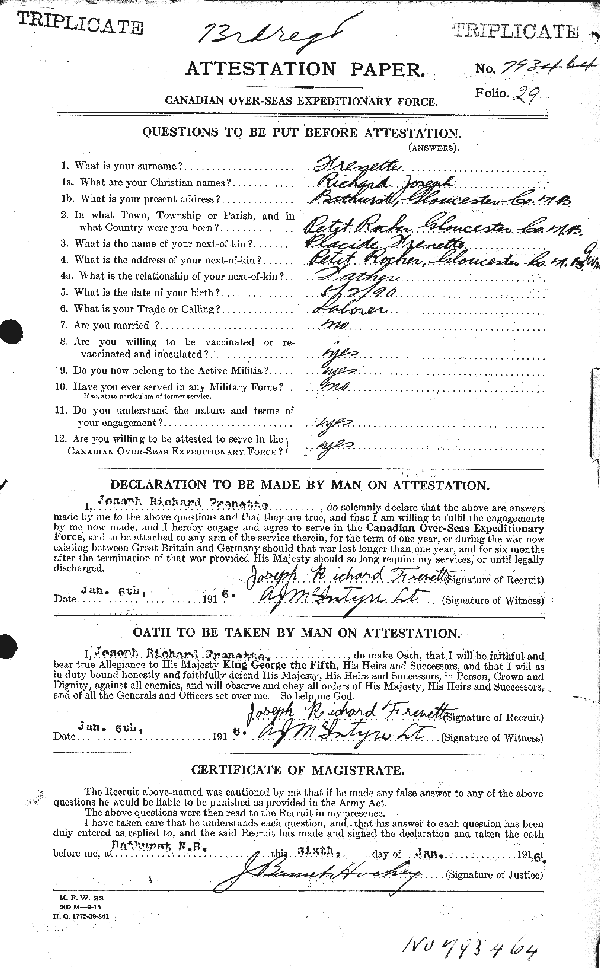 TRIPLICATE
TRIPLICATE
ATTESTATION PAPER.
No. 793464
Folio. 29
CANADIAN OVER-SEAS EXPEDITIONARY FORCE.
QUESTIONS TO BE PUT BEFORE ATTESTATION.
(ANSWERS).
1. What is your surname? Frenette
1a. What are your Christian names? Richard Joseph
1b. What is your present address? Bathurst, Gloucester Co. N.B.
2. In what Town, Township or Parish, and in
what Country were you born? Petit Rocher, Gloucester Co. N.B.
3. What is the name of your next-of kin? Placide Frenette
4. What is the address of your next-of-kin? Petit Rocher, Gloucester Co. N.B.
4a. What is the relationship of your next-of-kin? Father
5. What is the date of your birth? 5/2/90
6. What is your Trade or Calling? Laborer
7. Are you married? no
8. Are you willing to be vaccinated or re-
vaccinated and inoculated? yes
9. Do you now belong to the Active Militia? yes
10. Have you ever served in any Military Force? no
If so, state particulars of former service.
11. Do you understand the nature and terms of
your engagement? yes
12. Are you willing to be attested to serve in the
CANADIAN OVER-SEAS EXPEDITIONARY FORCE? yes
DECLARATION TO BE MADE BY MAN ON ATTESTATION.
I, Joseph Richard Frenette, do solemnly declare that the above are answers
made by me to the above questions and that they are true, and that I am willing to fulfil the engagements
by me now made, and I hereby engage and agree to serve in the Canadian Over-Seas Expeditionary
Force, and to be attached to any arm of the service therein, for the term of one year, or during the war now
existing between Great Britain and Germany should that war last longer than one year, and for six months
after the termination of that war provided His Majesty should so require my services, or until legally
discharged.
Joseph Richard Frenette (Signature of Recruit)
Date Jan. 6th, 1916. A J McIntyre Lt (Signature of Witness)
OATH TO BE TAKEN BY MAN ON ATTESTATION.
I, Joseph Richard Frenette, do make Oath, that I will be faithful and
bear true Allegiance to His Majesty King George the Fifth, His Heirs and Successors, and that I will as
in duty bound honestly and faithfully defend His Majesty, His Heirs and Successors, in Person, Crown and
Dignity, against all enemies, and will observe and obey all orders of His Majesty, His Heirs and Successors,
and of all the Generals and Officers set over me. So help me God.
Joseph Richard Frenette (Signature of Recruit)
Date Jan. 6th, 1916. A J McIntyre Lt (Signature of Witness)
CERTIFICATE OF MAGISTRATE.
The Recruit above-named was cautioned by me that if he made any false answer to any of the above
questions he would be liable to be punished as provided in the Army Act.
The above questions were then read to the Recruit in my presence.
I have taken care that he understands each question, and that his answer to each question has been
duly entered as replied to, and the said Recruit has made and signed the declaration and taken the oath
before me, at Bathurst N.B. this sixth, day of Jan. 1916.
(Signature of Justice)
M. F. W. 23
H. Q. 1772-39-841
No 793464